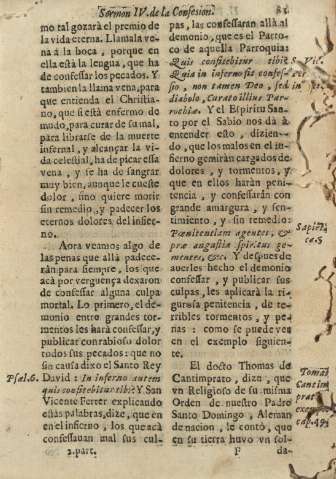 Sermon IV. de la Confesion. 81
mo tal gozará el premio de
la vida eterna. Llamala ve-
na á la boca, porque en
ella está la lengua, que ha
de confessar los pecados. Y
tambien la llama vena, para
que entienda el Christia-
no, que si está enfermo de
mudo, para curar de su mal,
para librarse de la muerte
infernal, y alcançar la vi-
da celestial, ha de picar essa
vena, y se ha de sangrar
muy bien, aunque le cueste
dolor, sino quiere morir
sin remedio, y padecer los
eternos dolores del infier-
no.
Aora veamos algo de
las penas que allá padece-
rán para siempre, los que
acá por verguença dexaron
de confessar alguna culpa
mortal. Lo primero, el de-
monio entre grandes tor-
mentos les hará confessar, y
publicar con rabioso dolor
todos sus pecados: que no
sin causa dixo el Santo Rey
Psal. 6. David: In inferno autem
quis confitebitur tibi? Y San
Vicente Ferrer explicando
estas palabras, dize, que en
en el infierno, los que acá
confessauan mal sus cul-
2. part.
pas, las confessaran allá al
demonio, que es el Parro-
co de aquella Parroquia:
Quis confitebitur tibi? S. Vic.
Quia in infernos is confess-
sio, non tamen Deo, sed in
diabolo, Curato illius Par-
rochiæ. Y el Espiritu San-
to por el Sabio nos dá à
entender esto, dizien-
do, que los malos en el in-
fierno gemirán cargados de
dolores, y tormentos, y
que en ellos harán peni-
tencia, y confessarán con
grande amargura, y sen-
timiento, y sin remedio:
Pœnitentiam agentes, & Sapient.
præ angustia spiritus ge- c. 5
mentes, &c. Y despues de
averles hecho el demonio
confessar, y publicar sus
culpas, les aplicará la ri-
gurosa penitencia, de te-
rribles tormentos, y pe-
nas: como se puede ver
en el exemplo siguien-
te.
El docto Thomas de
Cantimprato, dize, que
vn Religioso de su misma
Orden de nuestro Padre
Santo Domingo, Aleman
de nacion, le contò, que
en su tierra huvo vn sol-
F da-